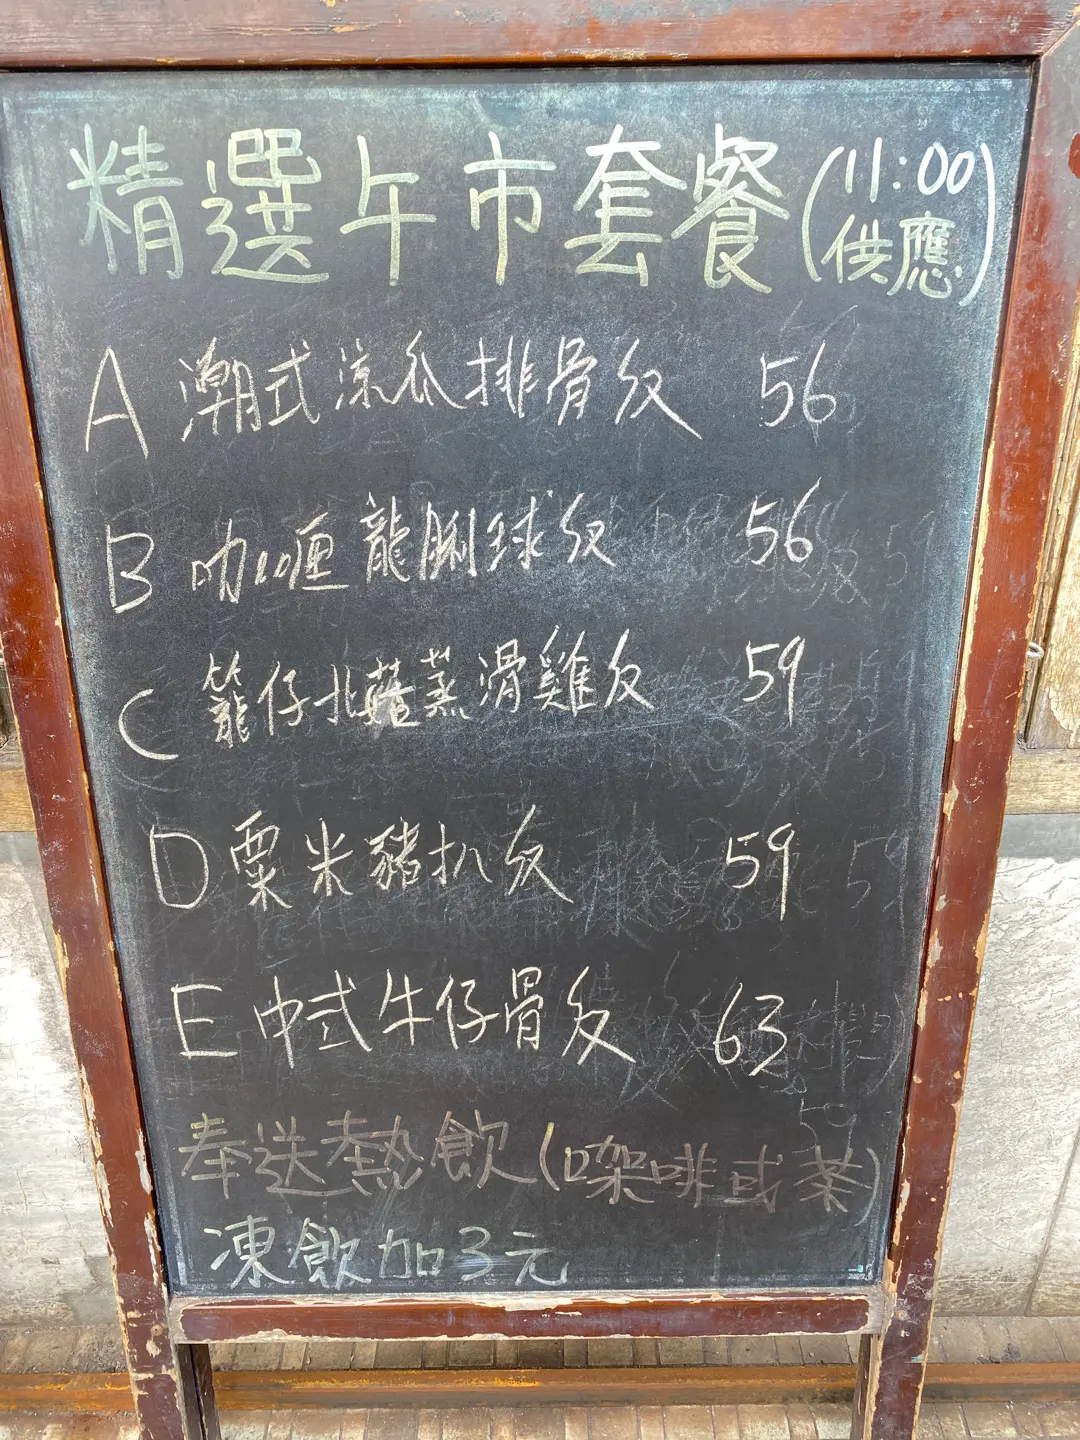 精選午市套餐(11:00供應)
A 潮式涼瓜排骨飯 56
B 咖喱龍脷球飯 56
C 籠仔北菇蒸滑雞飯 59
D 粟米豬扒飯 59
E 中式牛仔骨飯 63
奉送熱飲(㗎啡或茶)
凍飲加3元